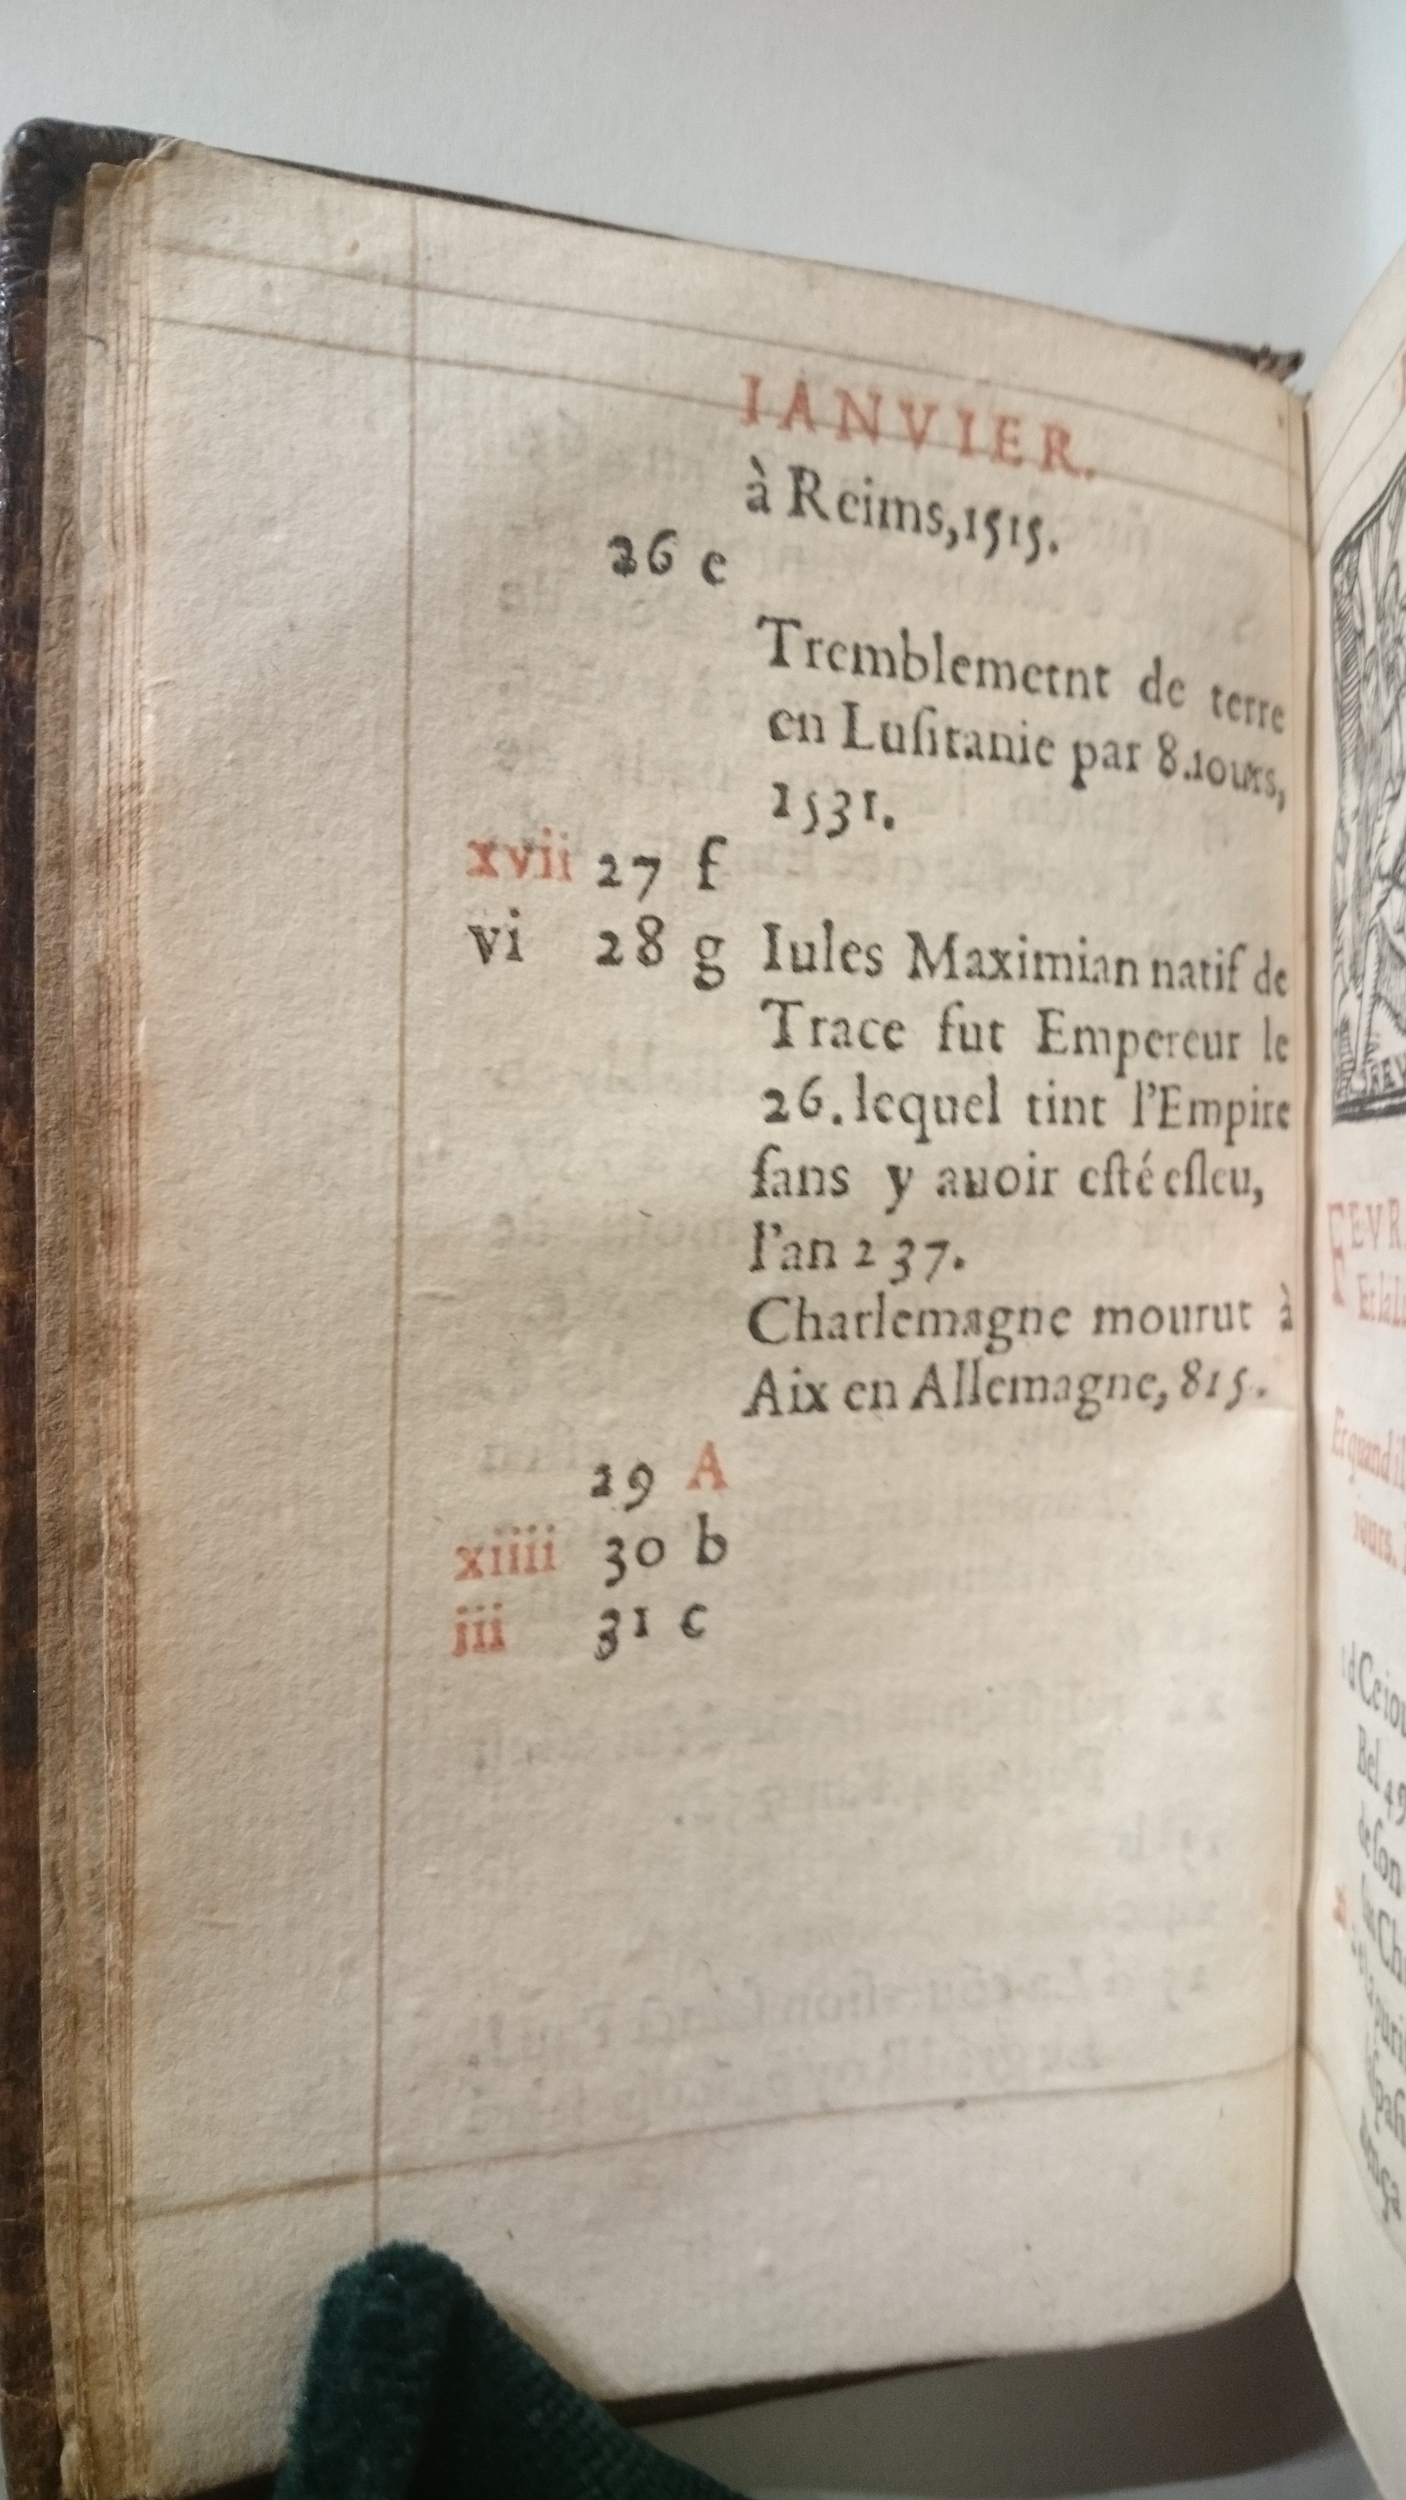 IANVIER.
à Reims, 1515.
26 e
Tremblemetnt de terre
en Luſitanie par 8. iours,
1531.
xvii 27 f
vi 28 g Iules Maximian natif de
Trace fut Empereur le
26. lequel tint l'Empire
ſans y auoir eſté eſleu,
l'an 237.
Charlemagne mourut à
Aix en Allemagne, 815.
29 A
xiiii 30 b
iii 31 c
FEVR
Et quand il
iours.
d Ce iou
Bel 49
de ſon